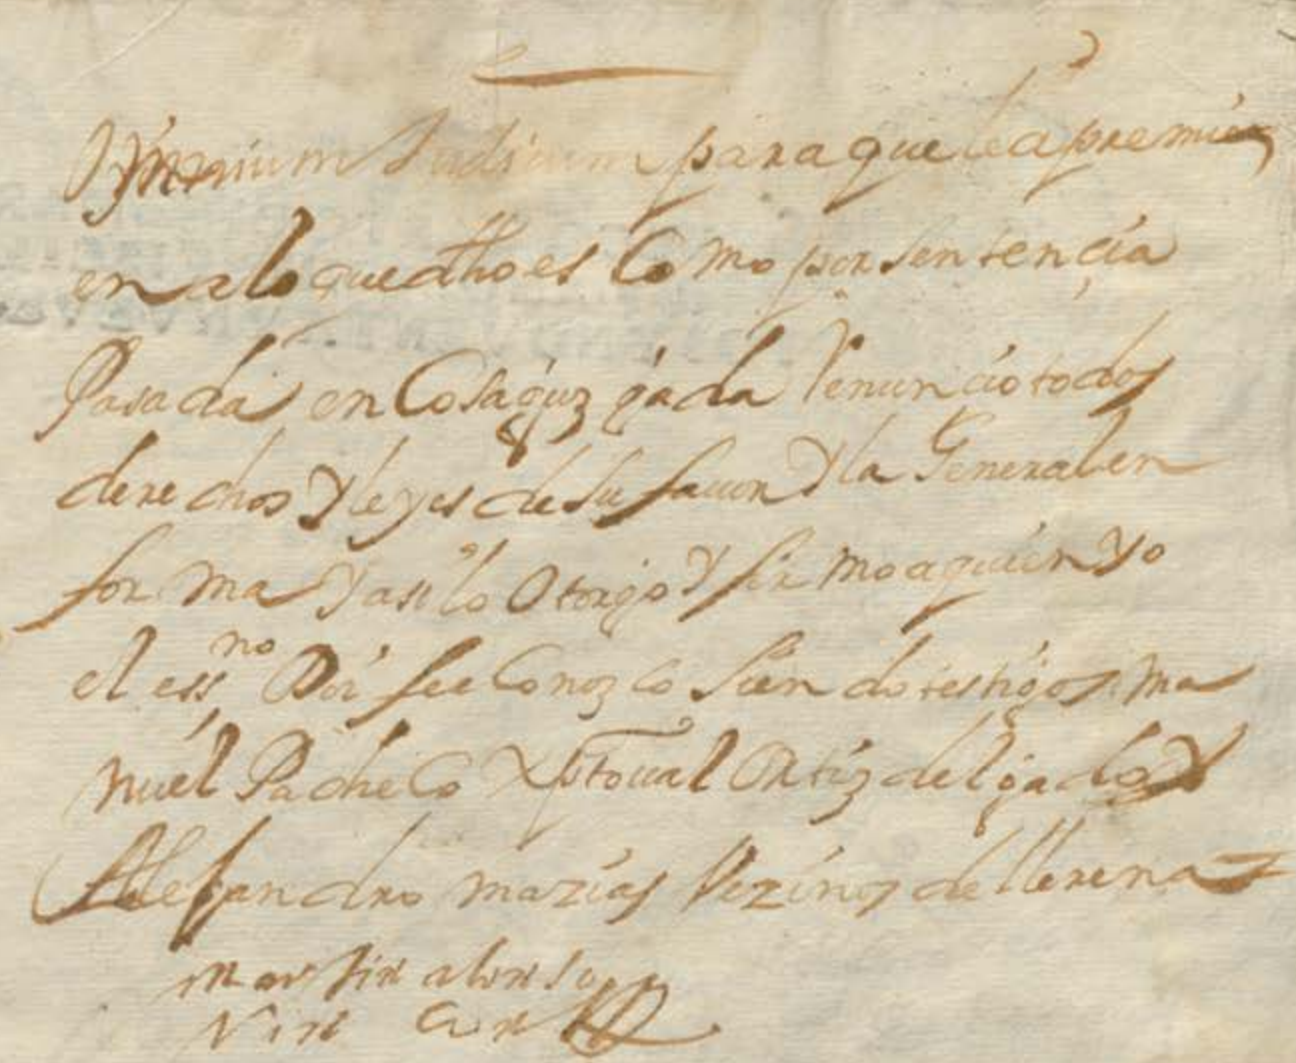 Omnium Judicum para que le apremien
en a lo que dho es Como por sentençia
Pasada en Cosa juzgada Renunçio todos
derechos Y leyes de su fauor Y la General en
forma Y asi lo Otorgo Y firmo a quien Yo
el essno Doi fee Conozco siendo testigos Ma
nuel Pacheco Xptoual Ortiz delgado Y
Alejandro mazias Vezinos de llerena
martin alonso